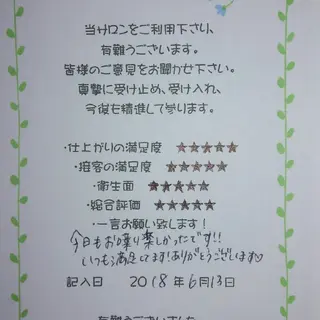 当サロンをご利用下さり、
有難うございます。
皆様のご意見をお聞かせ下さい。
真摯に受け止め、受け入れ、
今後も精進して参ります。
・仕上がりの満足度 ★★★★★
・接客の満足度 ★★★★★
・衛生面 ★★★★★
・総合評価 ★★★★★
・一言お願い致します!
今日もお喋り楽しかったです!!
いつも満足してます!ありがとうございます♡
記入日 2018年6月13日
有難うございました